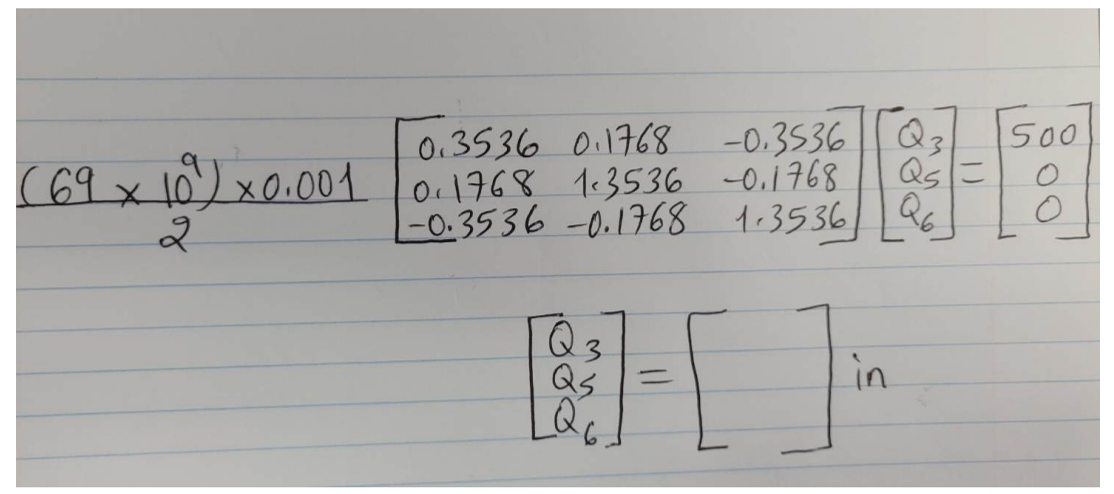 (69 × 10^9) × 0.001 / 2 [0.3536 0.1768 -0.3536; 0.1768 1.3536 -0.1768; -0.3536 -0.1768 1.3536] [Q3; Q5; Q6] = [500; 0; 0]
[Q3; Q5; Q6] = [ ] in